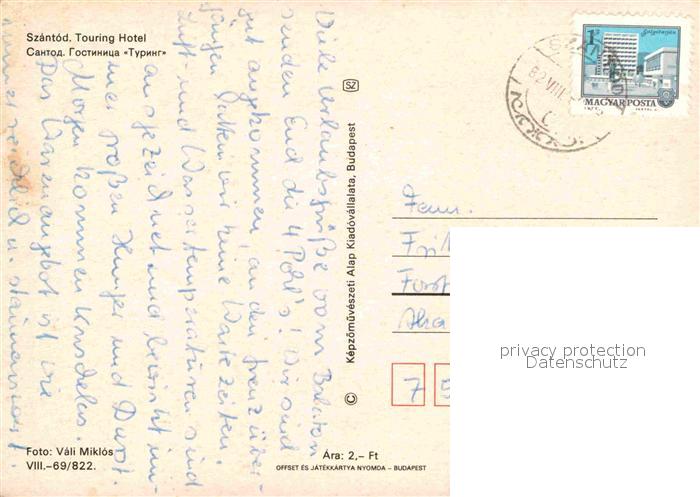 Szántód. Touring Hotel
Сантод. Гостиница «Туринг»
Viele Urlaubsgrüße vom Balaton
senden Euch die 4 Pohl's! Wir sind
gut angekommen, an den Grenzüber-
gängen hatten wir keine Wartezeiten.
Luft und Wassertemperaturen sind
ausgezeichnet und bewirkt im-
mer großen Hunger und Durst.
Morgen kommen Knüdelas.
Das Warenangebot ist wie
immer reichlich u.
Foto: Váli Miklós
VIII.–69/822.
SZ
© Képzőművészeti Alap Kiadóvállalata, Budapest
Ára: 2,– Ft
OFFSET ÉS JÁTÉKKÁRTYA NYOMDA – BUDAPEST
1 Ft
Salgótarján
MAGYAR POSTA
82 VIII
Fam.
7 5
privacy protection
Datenschutz